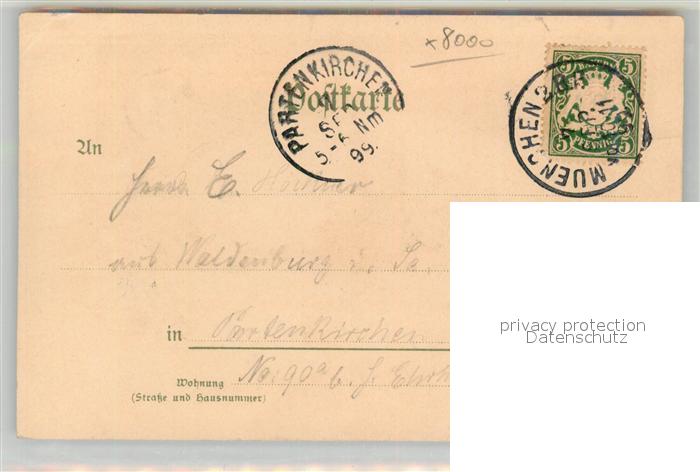 x8000
PARTENKIRCHEN
SEP
5-6 NM
99.
Postkarte
5 5
PFENNIG
5 5
MUENCHEN 2.B.P.
An
Herrn E.
aus Waldenburg i. Sa.
in Partenkirchen
Wohnung
(Straße und Hausnummer)
No. 90a b. J.
privacy protection
Datenschutz